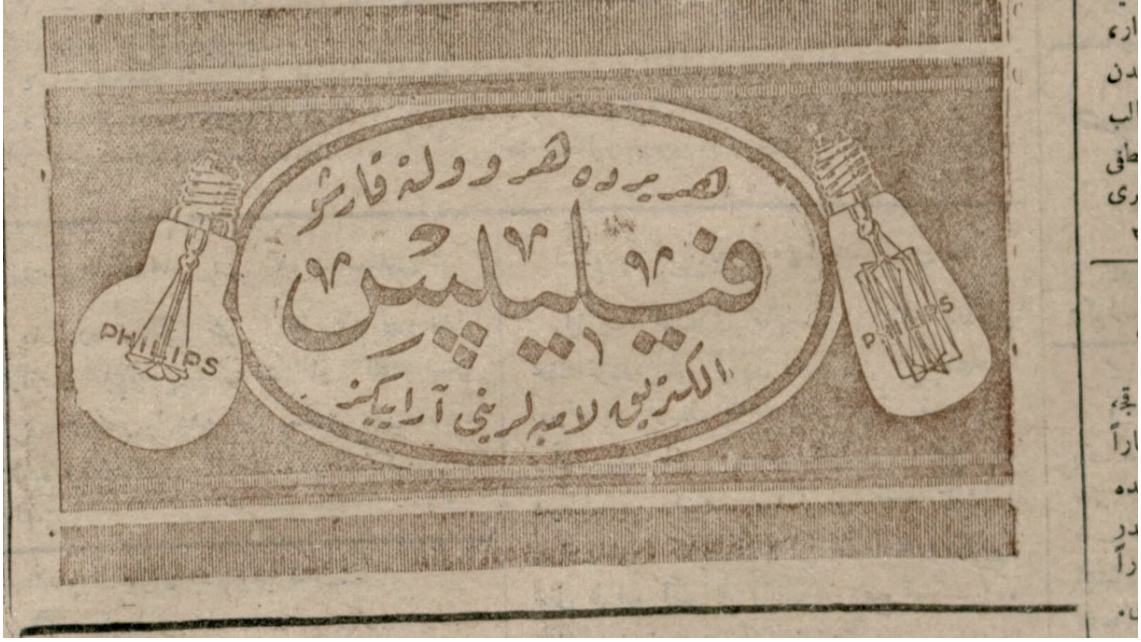 هر یرده هر وولته قارشو
فیلیپس
الکتریق لامبه لرینی آراییکز
PHILIPS
PHILIPS